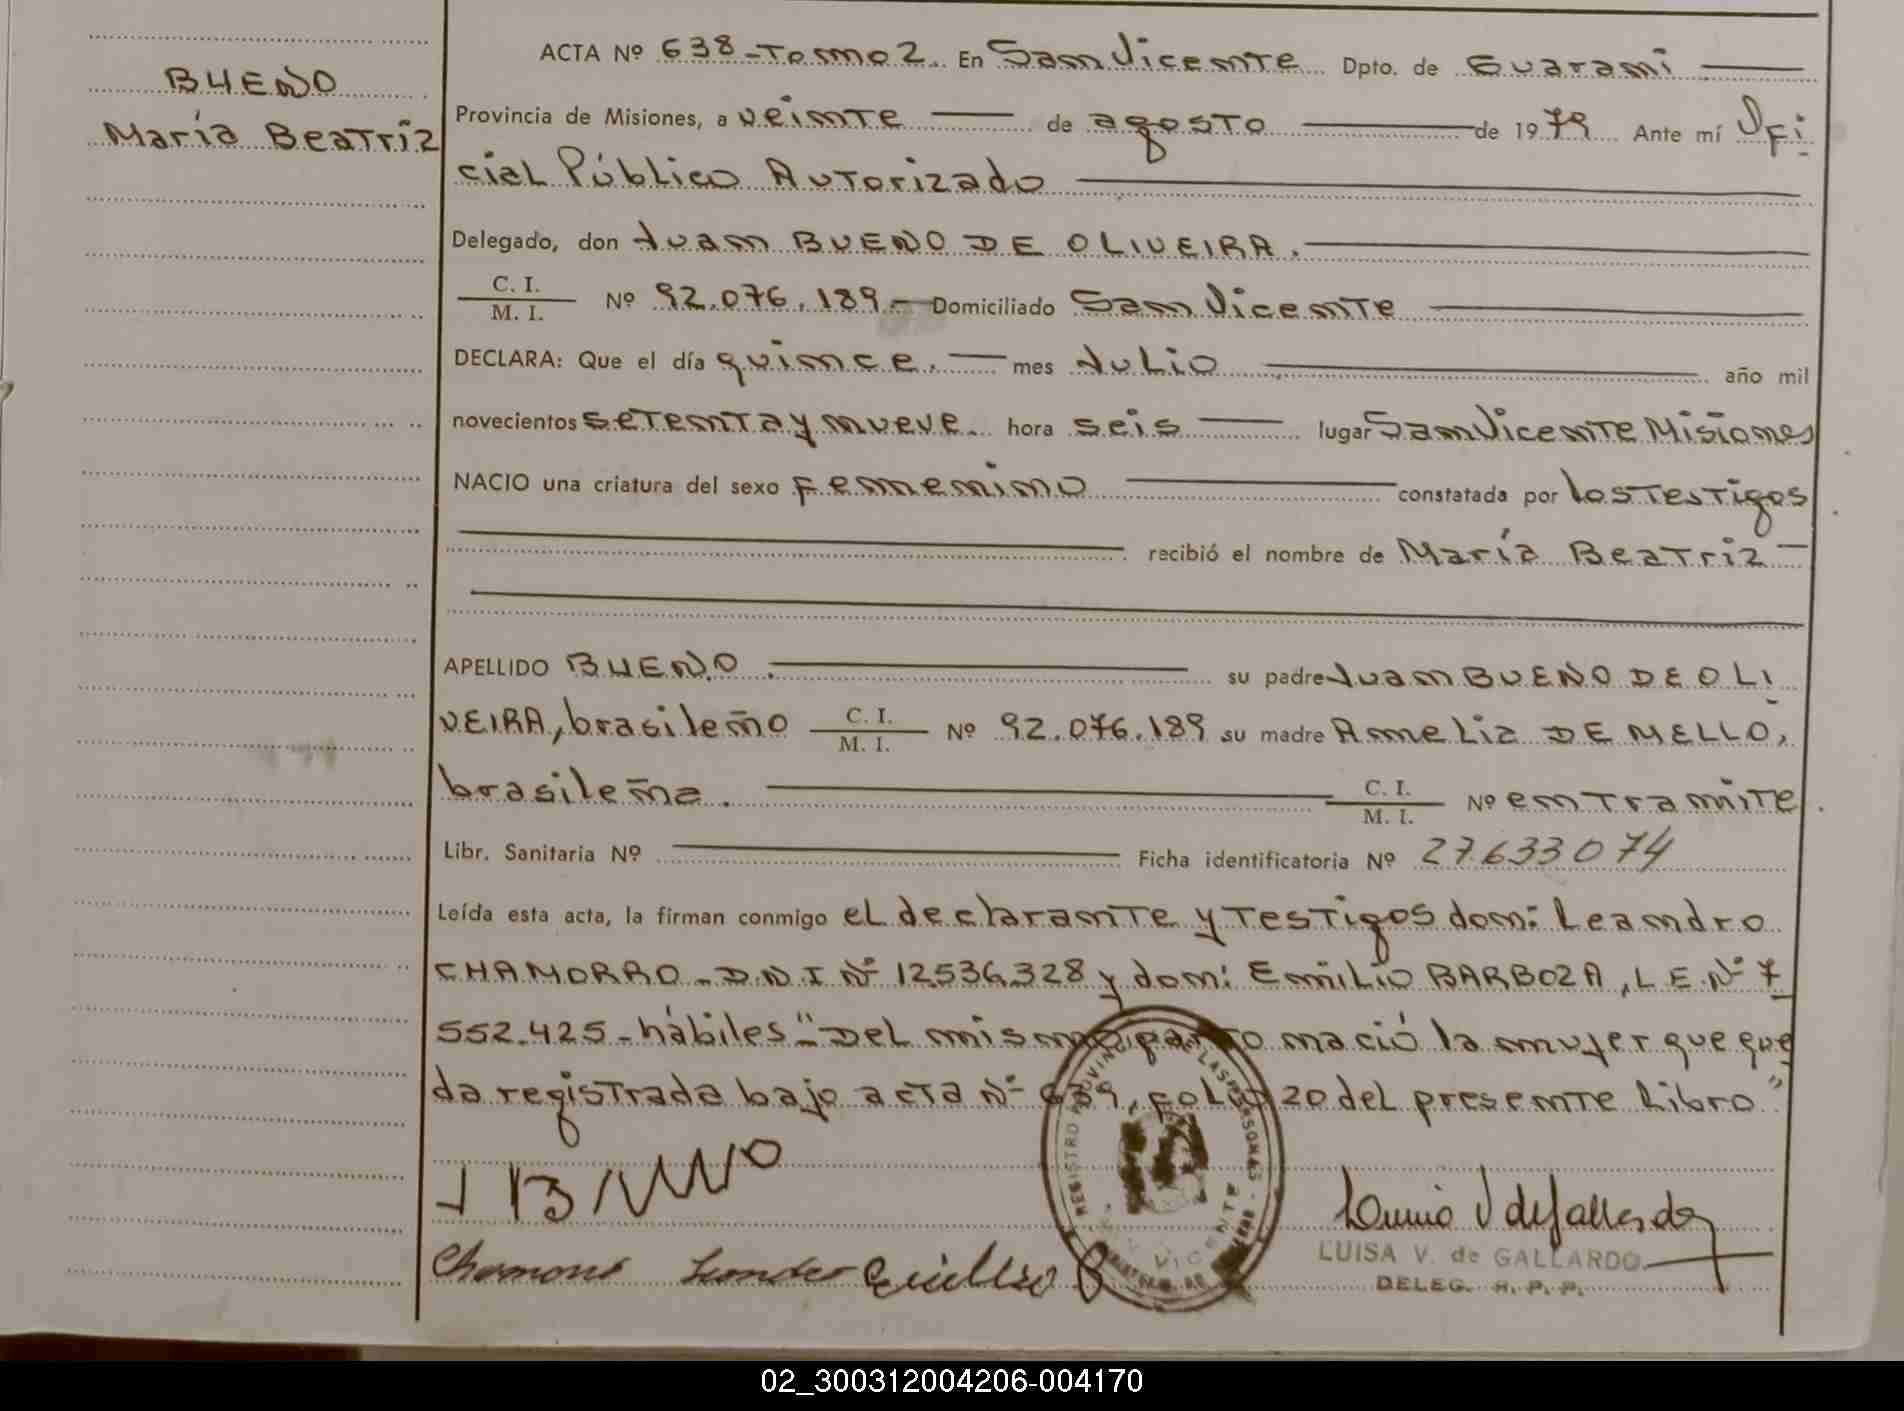 BUENO
María Beatriz
ACTA Nº 638-Tomo 2. En San Vicente Dpto. de Guaraní
Provincia de Misiones, a veinte de agosto de 1979 Ante mí Ofi
cial Público Autorizado
Delegado, don Juan BUENO DE OLIVEIRA.
C. I.
M. I. Nº 92.076.189.- Domiciliado San Vicente
DECLARA: Que el día quince. mes Julio año mil
novecientos setenta y nueve. hora seis lugar San Vicente Misiones
NACIO una criatura del sexo femenino constatada por los testigos
recibió el nombre de María Beatriz
APELLIDO BUENO. su padre Juan BUENO DE OLI
VEIRA, brasileño C. I. M. I. Nº 92.076.189 su madre Amelia DE MELLO,
brasileña. C. I. M. I. Nº en tramite.
Libr. Sanitaria Nº Ficha identificatoria Nº 27.633.074
Leída esta acta, la firman conmigo el declarante y testigos don: Leandro
CHAMORRO-D.N.I Nº 12.536.328 y don: Emilio BARBOZA, L.E. Nº 7
552.425-hábiles "-Del mismo parto nació la mujer que que
da registrada bajo acta Nº 639, folio 20 del presente Libro"
REGISTRO PROVINCIAL DE LAS PERSONAS
VICENTE
Chamorro Leandro
LUISA V. de GALLARDO
DELEG. R. P. P.
02_300312004206-004170